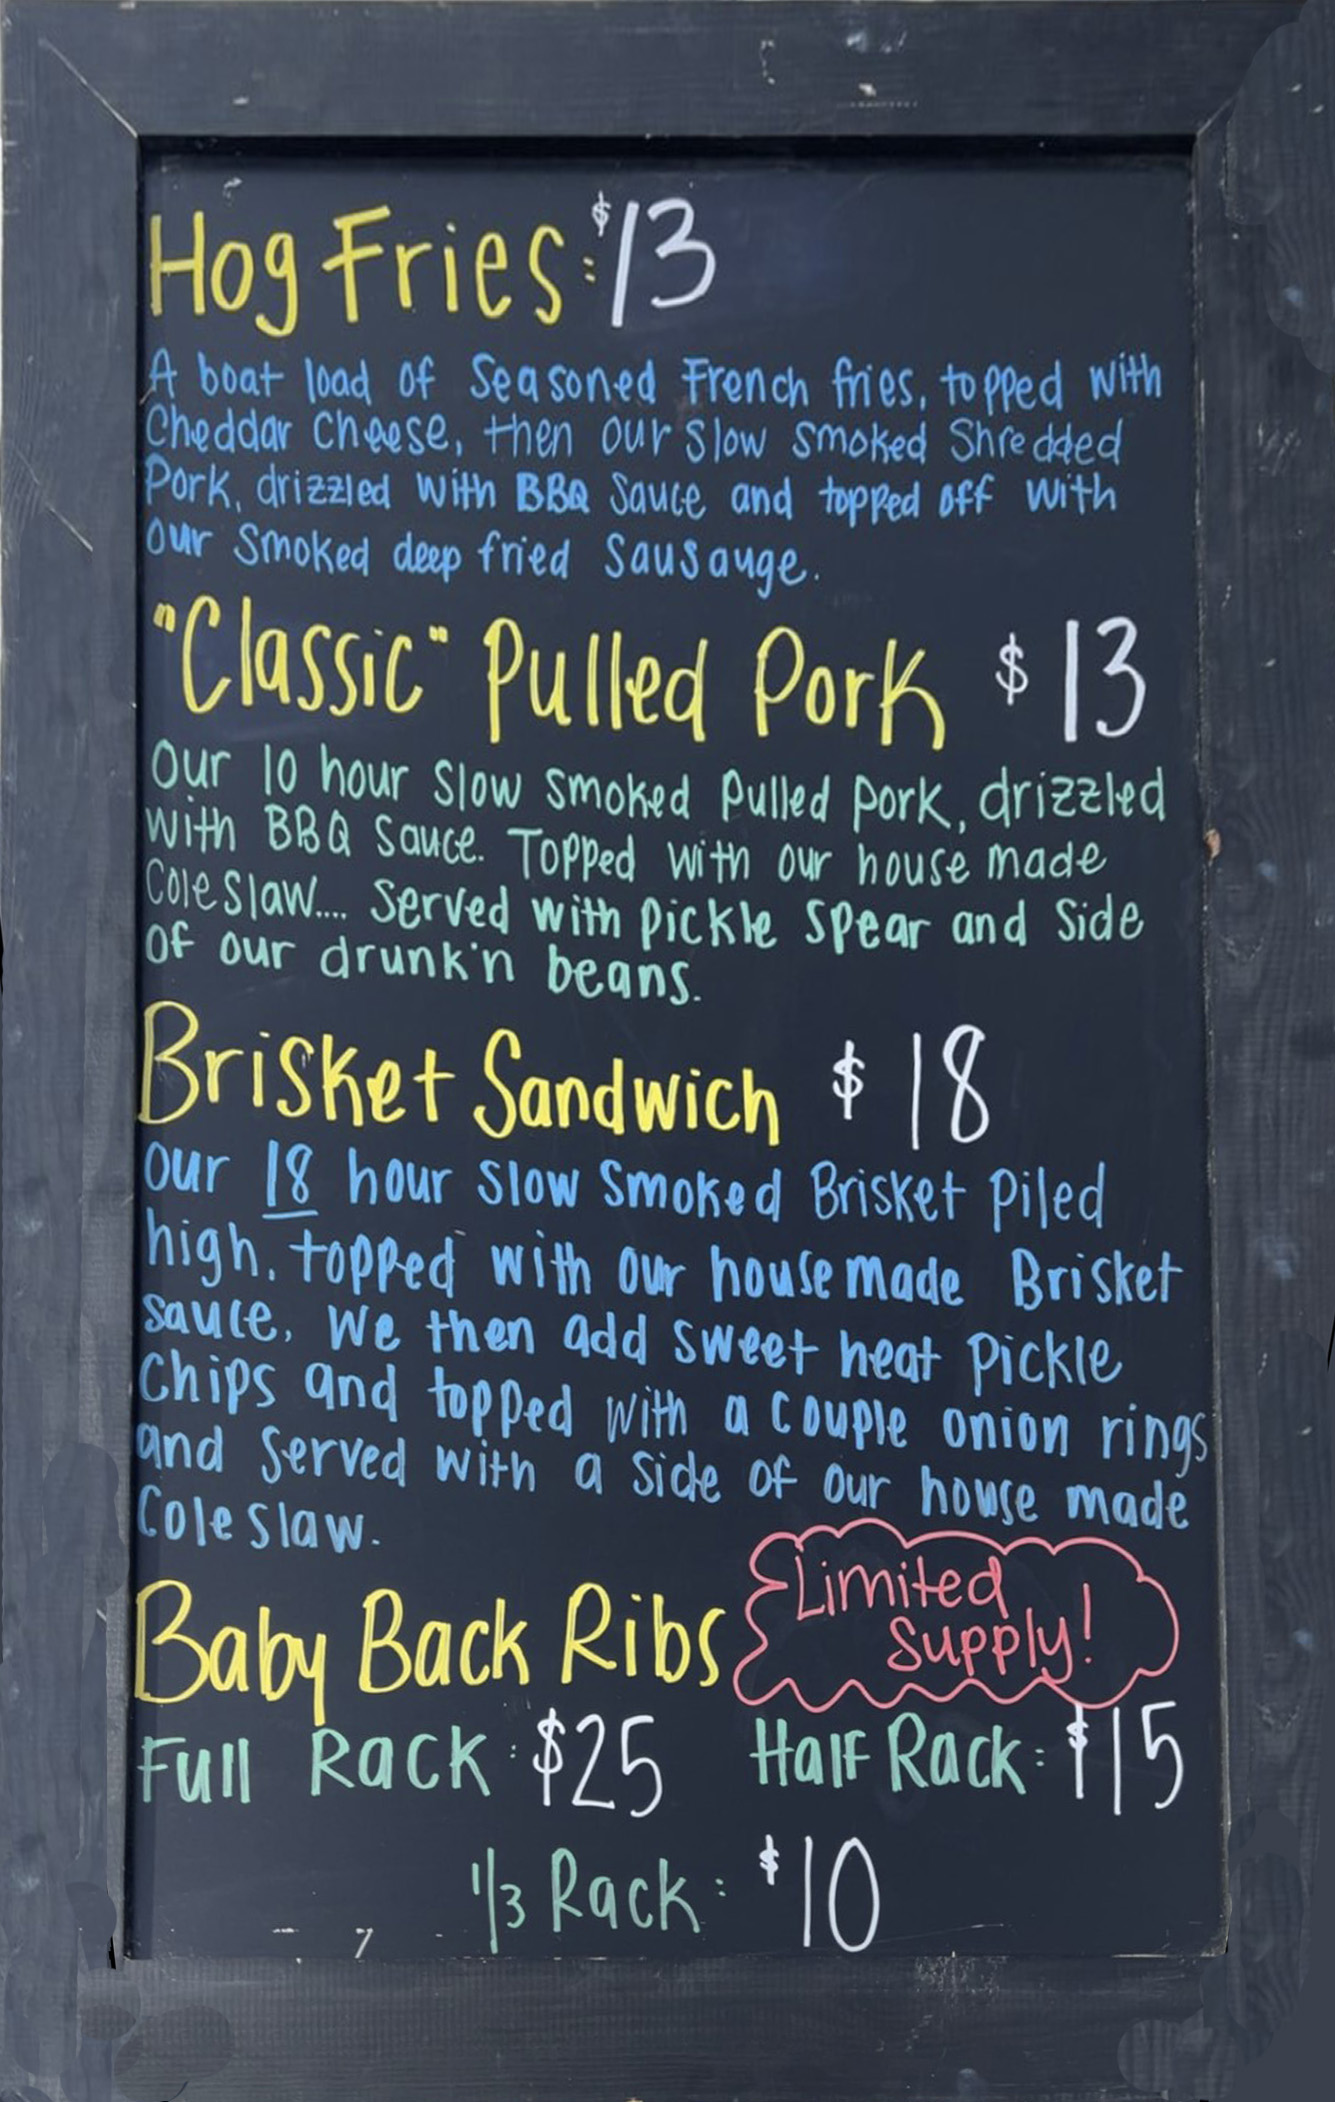 Hog Fries: $13
A boat load of Seasoned French fries, topped with
Cheddar Cheese, then our slow smoked Shredded
Pork, drizzled with BBQ Sauce and topped off with
our smoked deep fried Sausauge.
"Classic" Pulled Pork $13
Our 10 hour Slow smoked Pulled Pork, drizzled
with BBQ Sauce. Topped with our house made
Coleslaw.... Served with Pickle Spear and Side
of our drunk'n beans.
Brisket Sandwich $18
Our 18 hour slow smoked Brisket Piled
high, topped with our house made Brisket
sauce, we then add sweet heat Pickle
Chips and topped with a couple onion rings
and Served with a side of our house made
Coleslaw.
Baby Back Ribs Limited Supply!
Full Rack: $25 Half Rack: $15
1/3 Rack: $10